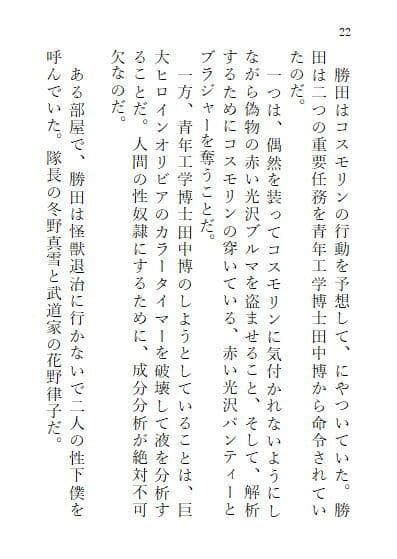 22
勝田はコスモリンの行動を予想して、にやついていた。勝
田は二つの重要任務を青年工学博士田中博から命令されてい
たのだ。
一つは、偶然を装ってコスモリンに気付かれないようにし
ながら偽物の赤い光沢ブルマを盗ませること、そして、解析
するためにコスモリンの穿いている、赤い光沢パンティーと
ブラジャーを奪うことだ。
一方、青年工学博士田中博のしようとしていることは、巨
大ヒロインオリビアのカラータイマーを破壊して液を分析す
ることだ。人間の性奴隷にするために、成分分析が絶対不可
欠なのだ。
ある部屋で、勝田は怪獣退治に行かないで二人の性下僕を
呼んでいた。隊長の冬野真雪と武道家の花野律子だ。